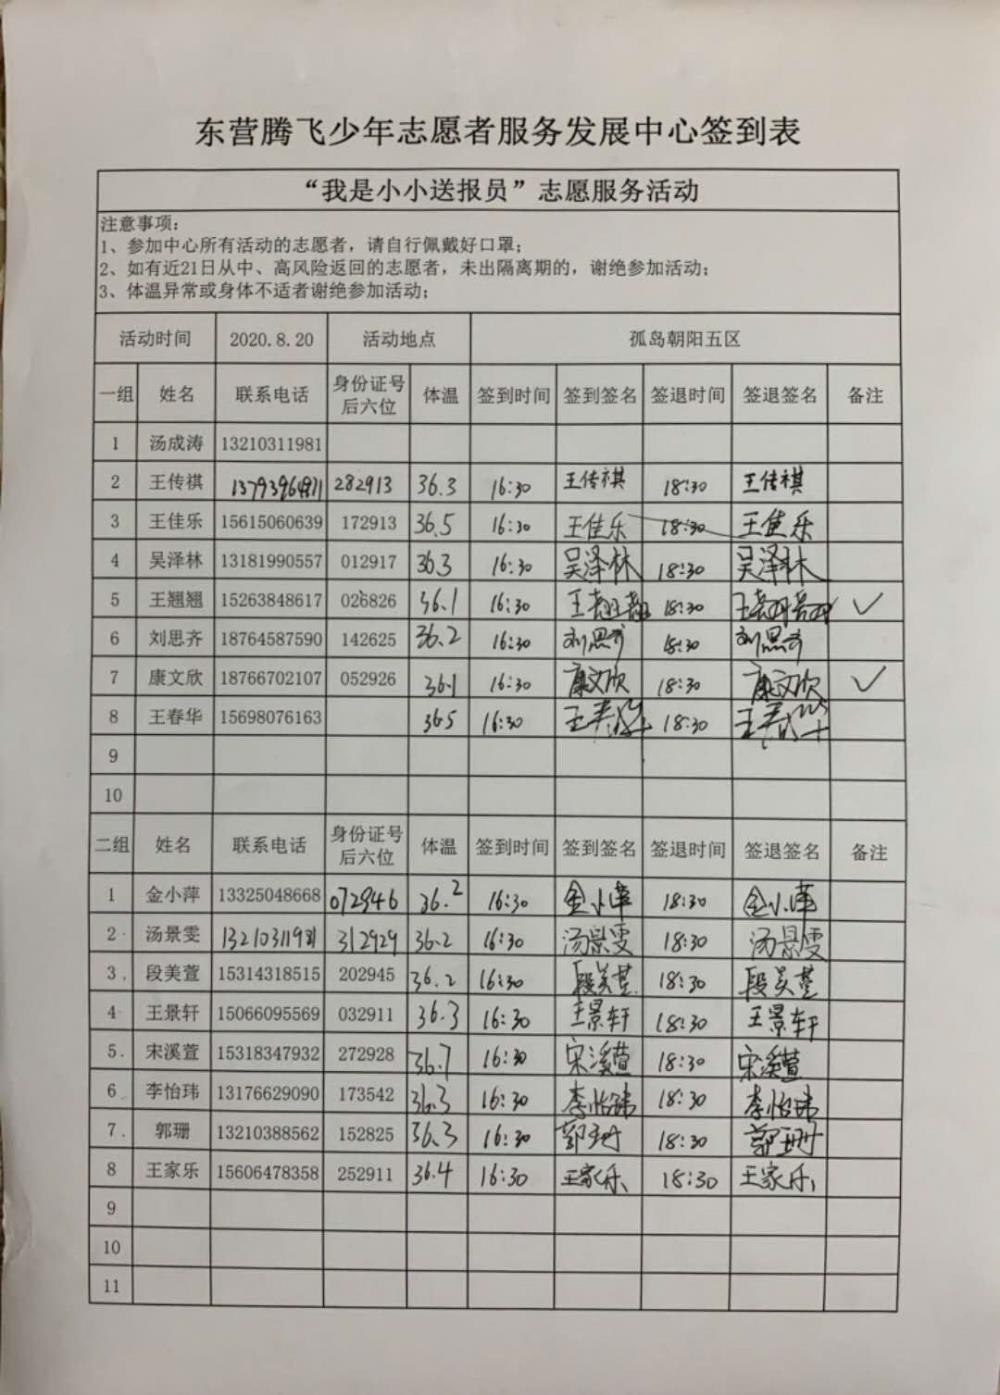 东营腾飞少年志愿者服务发展中心签到表
“我是小小送报员”志愿服务活动
注意事项:
1、参加中心所有活动的志愿者，请自行佩戴好口罩;
2、如有近21日从中、高风险返回的志愿者，未出隔离期的，谢绝参加活动;
3、体温异常或身体不适者谢绝参加活动;
活动时间 2020.8.20 活动地点 孤岛朝阳五区
一组 姓名 联系电话 身份证号后六位 体温 签到时间 签到签名 签退时间 签退签名 备注
1 汤成涛 13210311981
2 王传祺 13793964971 282913 36.3 16:30 王传祺 18:30 王传祺
3 王佳乐 15615060639 172913 36.5 16:30 王佳乐 18:30 王佳乐
4 吴泽林 13181990557 012917 36.3 16:30 吴泽林 18:30 吴泽林
5 王翘翘 15263848617 026826 36.1 16:30 王翘翘 18:30 王翘翘 ✓
6 刘思齐 18764587590 142625 36.2 16:30 刘思齐 18:30 刘思齐
7 康文欣 18766702107 052926 36.1 16:30 康文欣 18:30 康文欣 ✓
8 王春华 15698076163 36.5 16:30 王春华 18:30 王春华
9
10
二组 姓名 联系电话 身份证号后六位 体温 签到时间 签到签名 签退时间 签退签名 备注
1 金小萍 13325048668 072946 36.2 16:30 金小萍 18:30 金小萍
2 汤景雯 13210311981 312929 36.2 16:30 汤景雯 18:30 汤景雯
3 段美萱 15314318515 202945 36.2 16:30 段美萱 18:30 段美萱
4 王景轩 15066095569 032911 36.3 16:30 王景轩 18:30 王景轩
5 宋溪萱 15318347932 272928 36.7 16:30 宋溪萱 18:30 宋溪萱
6 李怡玮 13176629090 173542 36.3 16:30 李怡玮 18:30 李怡玮
7 郭珊 13210388562 152825 36.3 16:30 郭珊 18:30 郭珊
8 王家乐 15606478358 252911 36.4 16:30 王家乐 18:30 王家乐
9
10
11